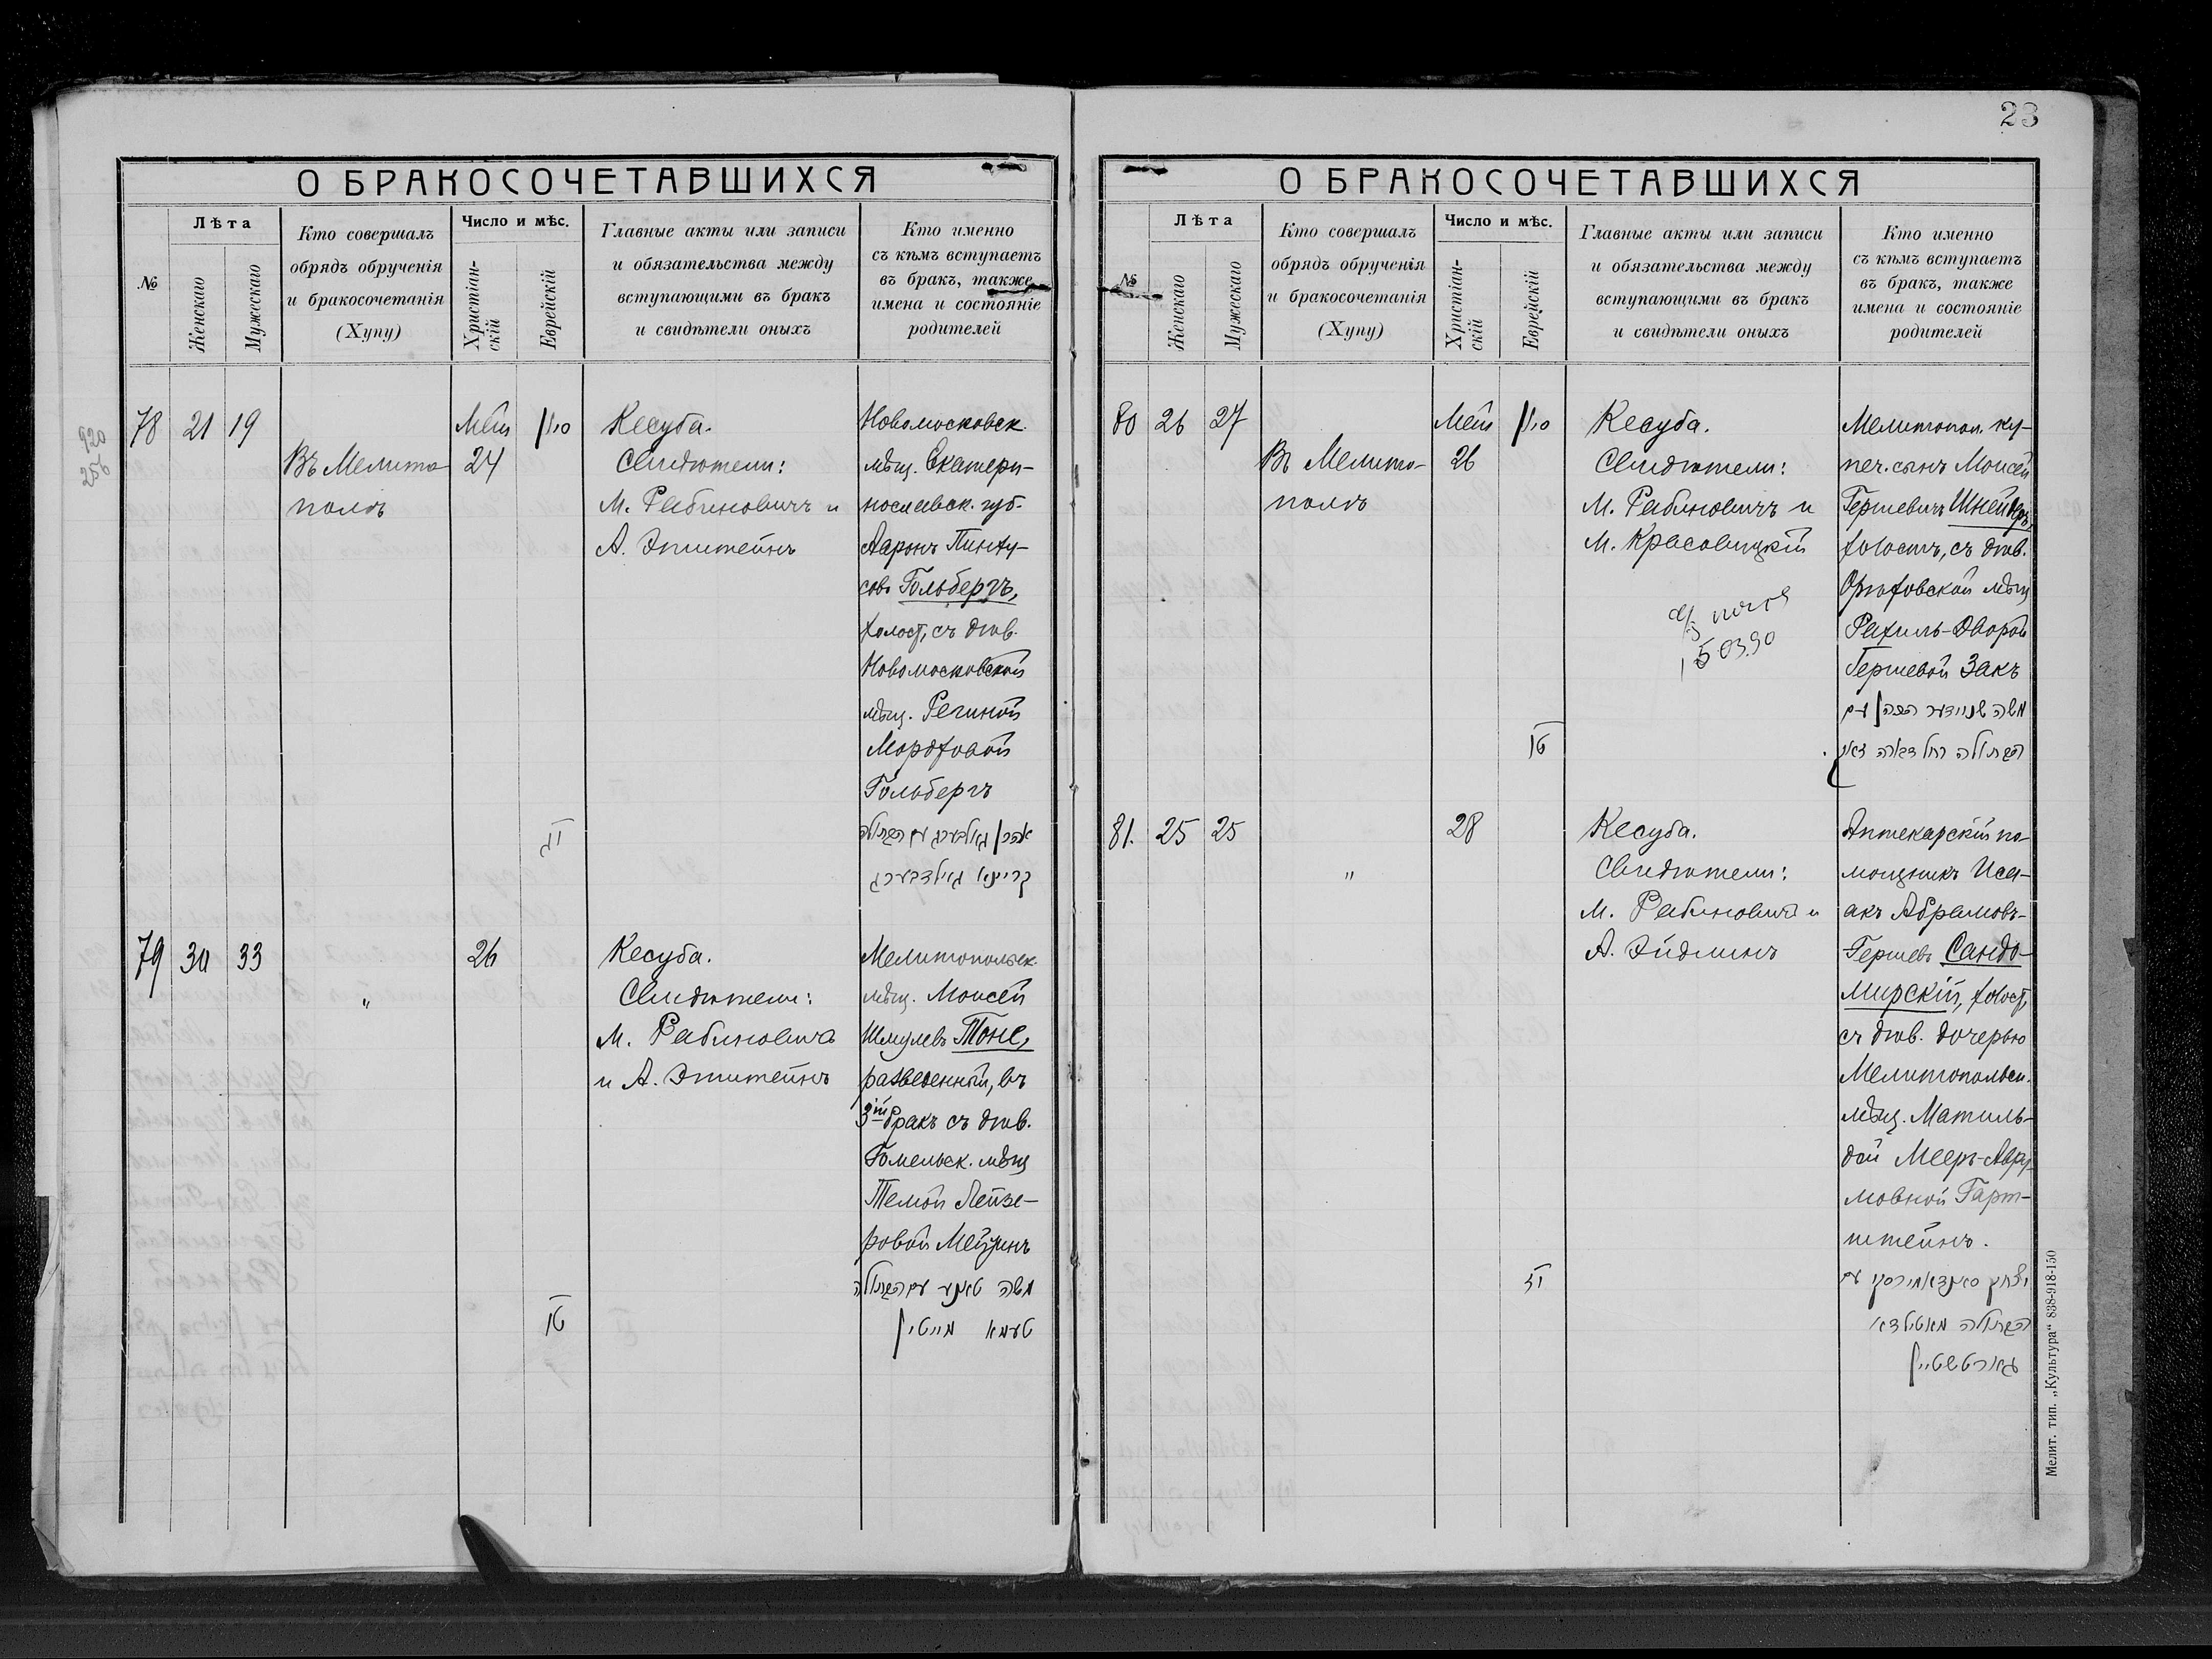 23
О БРАКОСОЧЕТАВШИХСЯ
№
Лѣта
Женскаго
Мужескаго
Кто совершалъ
обрядъ обрученія
и бракосочетанія
(Хупу)
Число и мѣс.
Христіан-
скій
Еврейскій
Главные акты или записи
и обязательства между
вступающими въ бракъ
и свидѣтели оныхъ
Кто именно
съ кѣмъ вступаетъ
въ бракъ, также
имена и состояніе
родителей
920
256
78
21
19
Въ Мелито-
полѣ
Май
24
סיון
יג
Кесуба.
Свидѣтели:
М. Рабиновичъ и
А. Эпштейнъ
Новомосковск.
мѣщ. Екатери-
нославск. губ.
Ааронъ Пинху-
совъ Гольбергъ,
холост, съ дѣв.
Новомосковской
мѣщ. Региной
Мордховой
Гольбергъ
אהרן גאלבערג עם הבתולה
גאלדבערג
79
30
33
"
26
טו
Кесуба.
Свидѣтели:
М. Рабиновичъ
и А. Эпштейнъ
Мелитопольск.
мѣщ. Моисей
Шмулевъ Тоне,
разведенный, въ
3ій бракъ съ дѣв.
Гомельск. мѣщ
Темой Лейзе-
ровой
משה טאנע עם הבתולה
טעמא
О БРАКОСОЧЕТАВШИХСЯ
№
Лѣта
Женскаго
Мужескаго
Кто совершалъ
обрядъ обрученія
и бракосочетанія
(Хупу)
Число и мѣс.
Христіан-
скій
Еврейскій
Главные акты или записи
и обязательства между
вступающими въ бракъ
и свидѣтели оныхъ
Кто именно
съ кѣмъ вступаетъ
въ бракъ, также
имена и состояніе
родителей
80
26
27
Въ Мелито-
полѣ
Май
26
סיון
טו
Кесуба.
Свидѣтели:
М. Рабиновичъ и
М. Красовицкій
Мелитопол. ку-
печ. сынъ Моисей
Гершевичъ Шнейдеръ,
холостъ, съ дѣв.
Орѣховской мѣщ
Рахиль-Дворой
Гершевой Закъ
משה שניידער עם
הבתולה רחל דווארה זאק
81.
25
25
"
28
יז
Кесуба.
Свидѣтели:
М. Рабиновичъ и
А. Эйдлинъ
Аптекарскій по-
мощникъ Иса-
акъ Абрамовъ-
Гершевъ Сандо-
мирскій, холост,
съ дѣв. дочерью
Мелитопольск.
мѣщ. Матиль-
дой Мееръ-Абра-
мовной Гарт-
штейнъ.
יצחק סאנדאמירסקי עם
הבתולה מאטילדא
גארטשטיין
Мелит. тип. „Культура“ 838-918-150